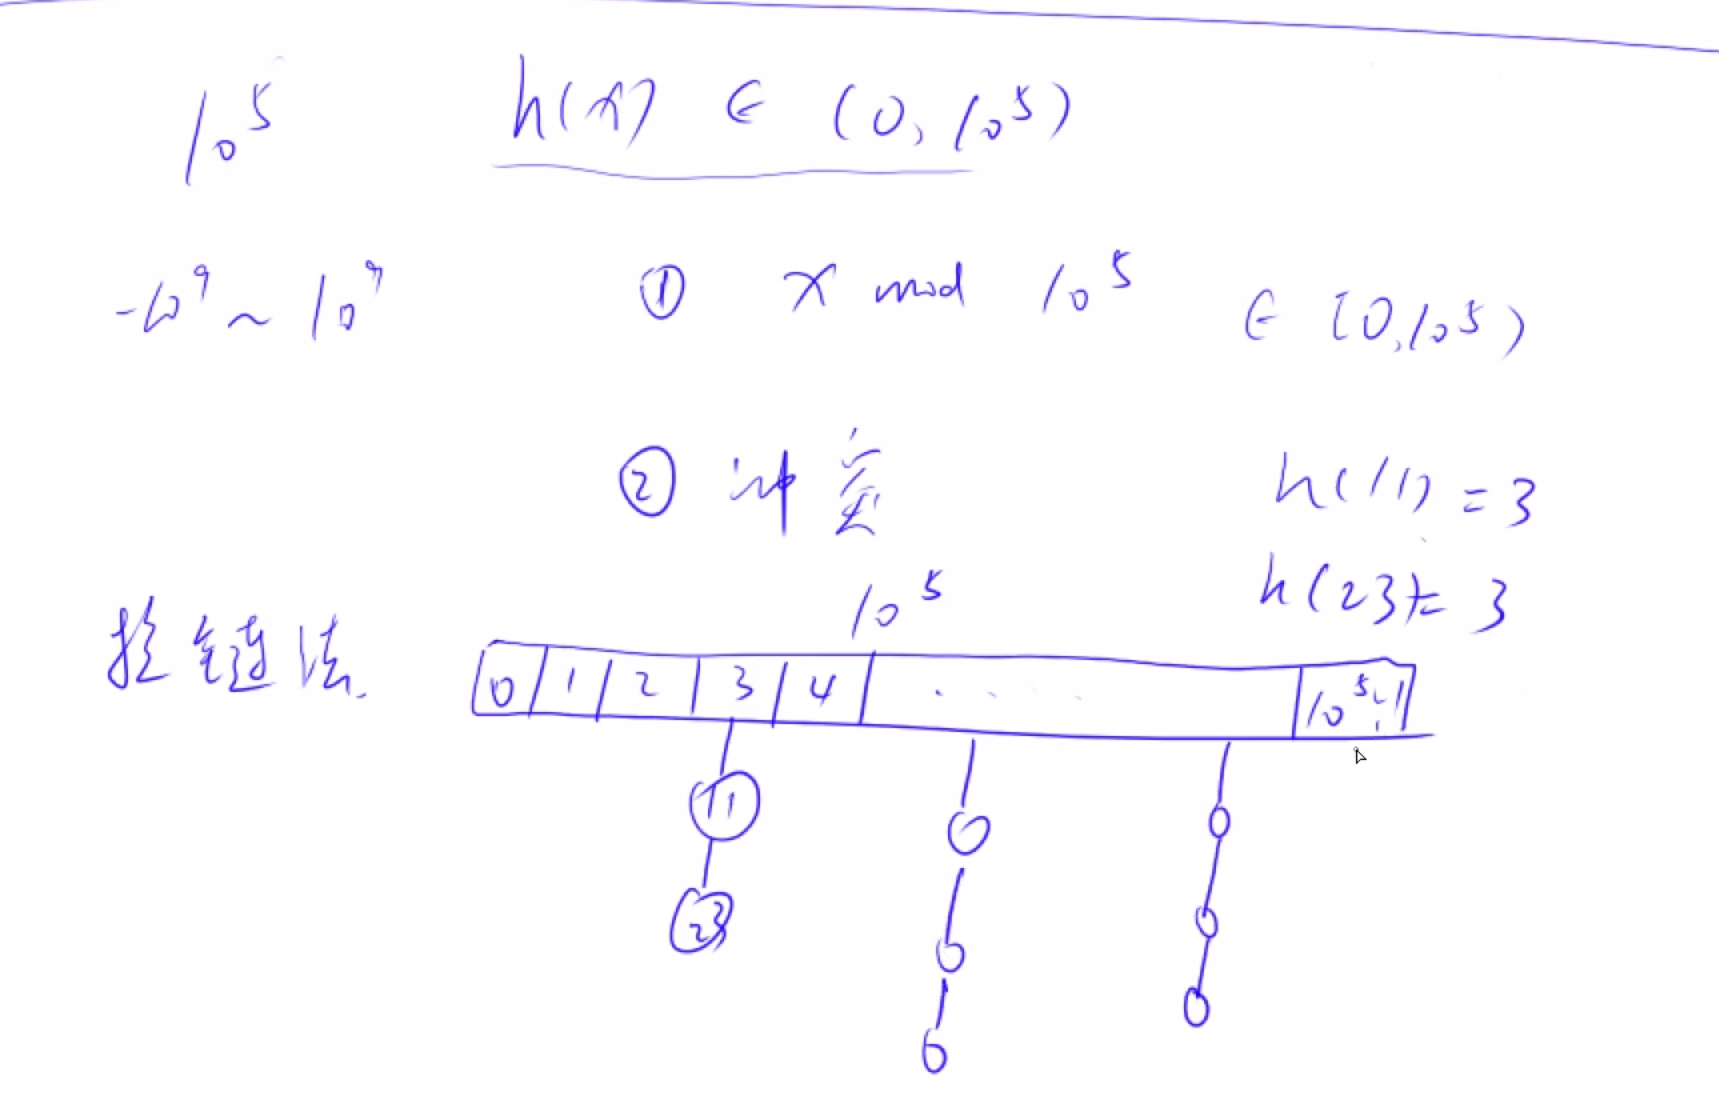 10^5 h(x) ∈ (0, 10^5)
-10^9 ~ 10^9 ① x mod 10^5 ∈ [0, 10^5)
② 冲突 h(11) = 3
h(23) = 3
拉链法. 10^5
0 1 2 3 4 . . . . 10^5-1
11
23